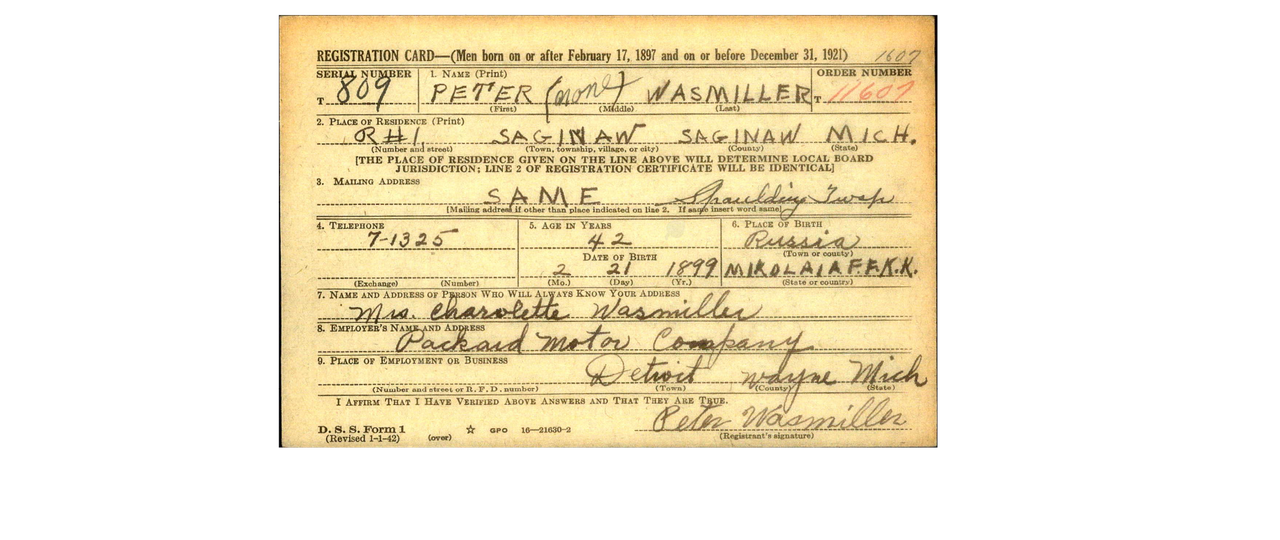 REGISTRATION CARD—(Men born on or after February 17, 1897 and on or before December 31, 1921) 1607
SERIAL NUMBER 1. NAME (Print) ORDER NUMBER
T 809 PETER (none) WASMILLER T 11607
(First) (Middle) (Last)
2. PLACE OF RESIDENCE (Print)
R#1, SAGINAW SAGINAW MICH.
(Number and street) (Town, township, village, or city) (County) (State)
[THE PLACE OF RESIDENCE GIVEN ON THE LINE ABOVE WILL DETERMINE LOCAL BOARD
JURISDICTION; LINE 2 OF REGISTRATION CERTIFICATE WILL BE IDENTICAL]
3. MAILING ADDRESS
SAME Spaulding Twsp
[Mailing address if other than place indicated on line 2. If same insert word same]
4. TELEPHONE 5. AGE IN YEARS 6. PLACE OF BIRTH
7-1325 42 Russia
(Town or county)
DATE OF BIRTH
2 21 1899 MIKOLAIAFF.K.K.
(Exchange) (Number) (Mo.) (Day) (Yr.) (State or country)
7. NAME AND ADDRESS OF PERSON WHO WILL ALWAYS KNOW YOUR ADDRESS
Mrs. Charolette Wasmiller
8. EMPLOYER'S NAME AND ADDRESS
Packard Motor Company
9. PLACE OF EMPLOYMENT OR BUSINESS
Detroit Wayne Mich
(Number and street or R. F. D. number) (Town) (County) (State)
I AFFIRM THAT I HAVE VERIFIED ABOVE ANSWERS AND THAT THEY ARE TRUE.
Peter Wasmiller
D. S. S. Form 1 GPO 16—21630-2
(Revised 1-1-42) (over) (Registrant's signature)